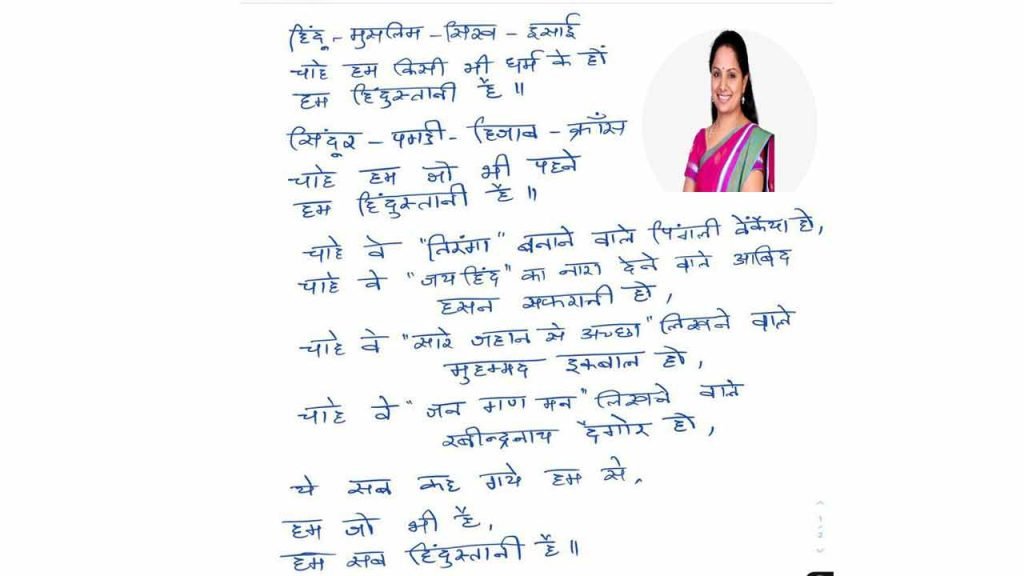 हिंदू - मुसलिम - सिख - इसाई
चाहे हम किसी भी धर्म के हों
हम हिंदुस्तानी है ॥
सिंदूर - पगड़ी - हिजाब - क्रॉस
चाहे हम जो भी पहने
हम हिंदुस्तानी है ॥
चाहे वे "तिरंगा" बनाने वाले पिंगली वेंकैया हो,
चाहे वे "जय हिंद" का नारा देने वाले आबिद
हसन सफरानी हो,
चाहे वे "सारे जहान से अच्छा" लिखने वाले
मुहम्मद इकबाल हो,
चाहे वे "जन गण मन" लिखने वाले
रबीन्द्रनाथ टैगोर हो,
ये सब कह गये हम से,
हम जो भी है,
हम सब हिंदुस्तानी है ॥